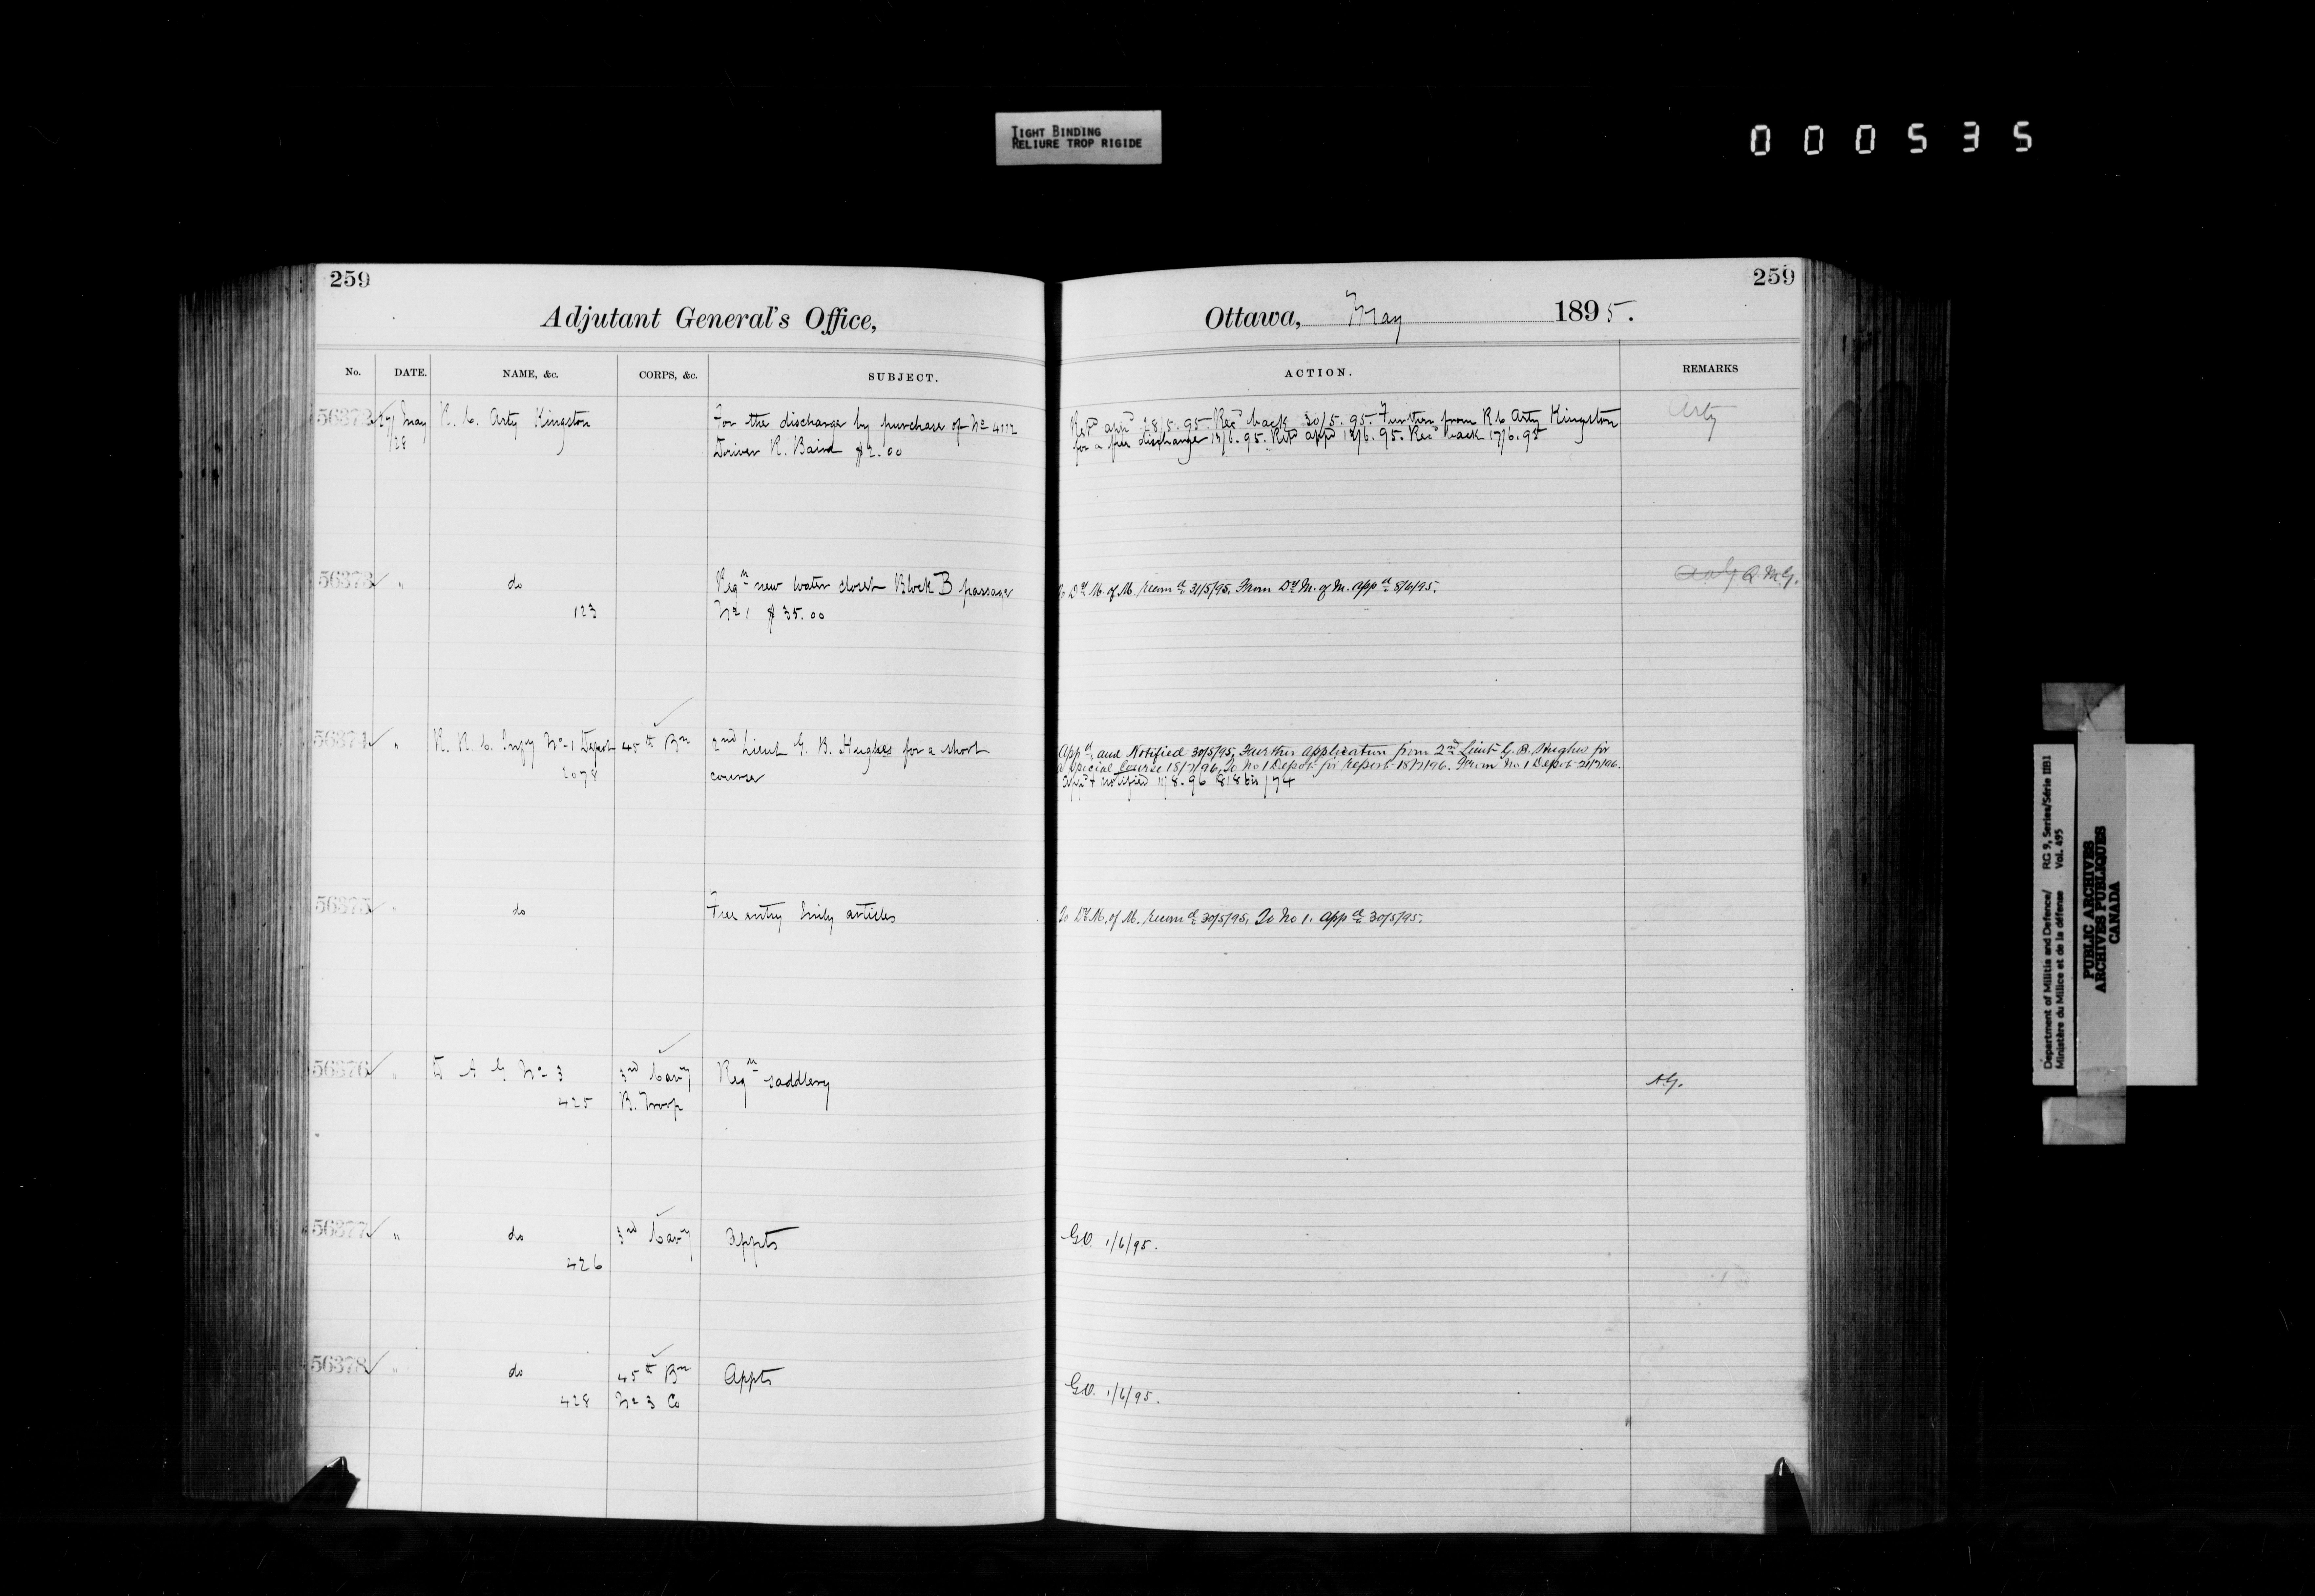 TIGHT BINDING
RELIURE TROP RIGIDE
000535
259
Adjutant General's Office,
No. DATE. NAME, &c. CORPS, &c. SUBJECT.
56372 27/28 May R. C. Arty Kingston For the discharge by purchase of No 4112
Driver R. Baird $2.00
56373 " do Reqn new water closet Block B passage
123 No 1 $35.00
56374 " R. R. C. Infy No 1 Depot 45th Bn 2nd Lieut G. B. Hughes for a short
2078 course
56375 " do Free entry articles
56376 " D A G No 3 3rd Cavy Reqn saddlery
425 B. Troop
56377 " do 3rd Cavy Appts
426
56378 " do 45th Bn Appts
428 No 3 Co
259
Ottawa, May 1895.
ACTION. REMARKS
Retd appd 28/5.95. Recd back 30/5.95. Further from R C Arty Kingston Arty
for a free discharge 13/6.95. Retd appd 13/6.95. Recd back 17/6.95
To Dy M. of M. recomd 31/5/95. From Dy M. of M. appd 8/6/95. Q.M.G.
Appd and Notified 30/5/95. Further application from 2nd Lieut G. B. Hughes for
a special course 15/7/96. To No 1 Depot for report 18/7/96. From No 1 Depot 21/7/96.
Appd & notified 11/8.96
To Dy M. of M. recomd 30/5/95. To No 1. appd 30/5/95.
A.G.
G.O. 1/6/95.
G.O. 1/6/95.
Department of Militia and Defence/ RG 9, Series/Série IIB1
Ministère du Milice et de la défense Vol. 495
PUBLIC ARCHIVES
ARCHIVES PUBLIQUES
CANADA